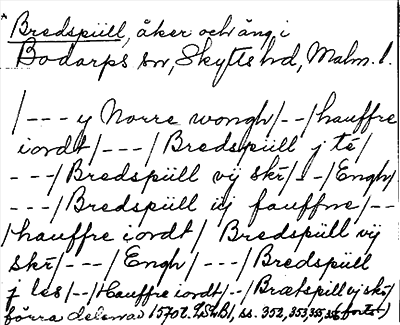 * Bredspiill, åker och äng i
Bodarps sn, Skytts hd, Malm. l.
/--- y Norre wongh/--/hauffre
iordt/---/Bredspiill j té/
---/Bredspiill vij skr/--/Engh/
---/Bredspiill iij fauffne/--
/hauffre iordt/Bredspiill vij
skr/---/Engh/---/Bredspiill
j les/--/Hauffre iordt/--/Brætspill vj skr/
förra delen av 1570t. LSkB1, ss. 352, 353, 355,